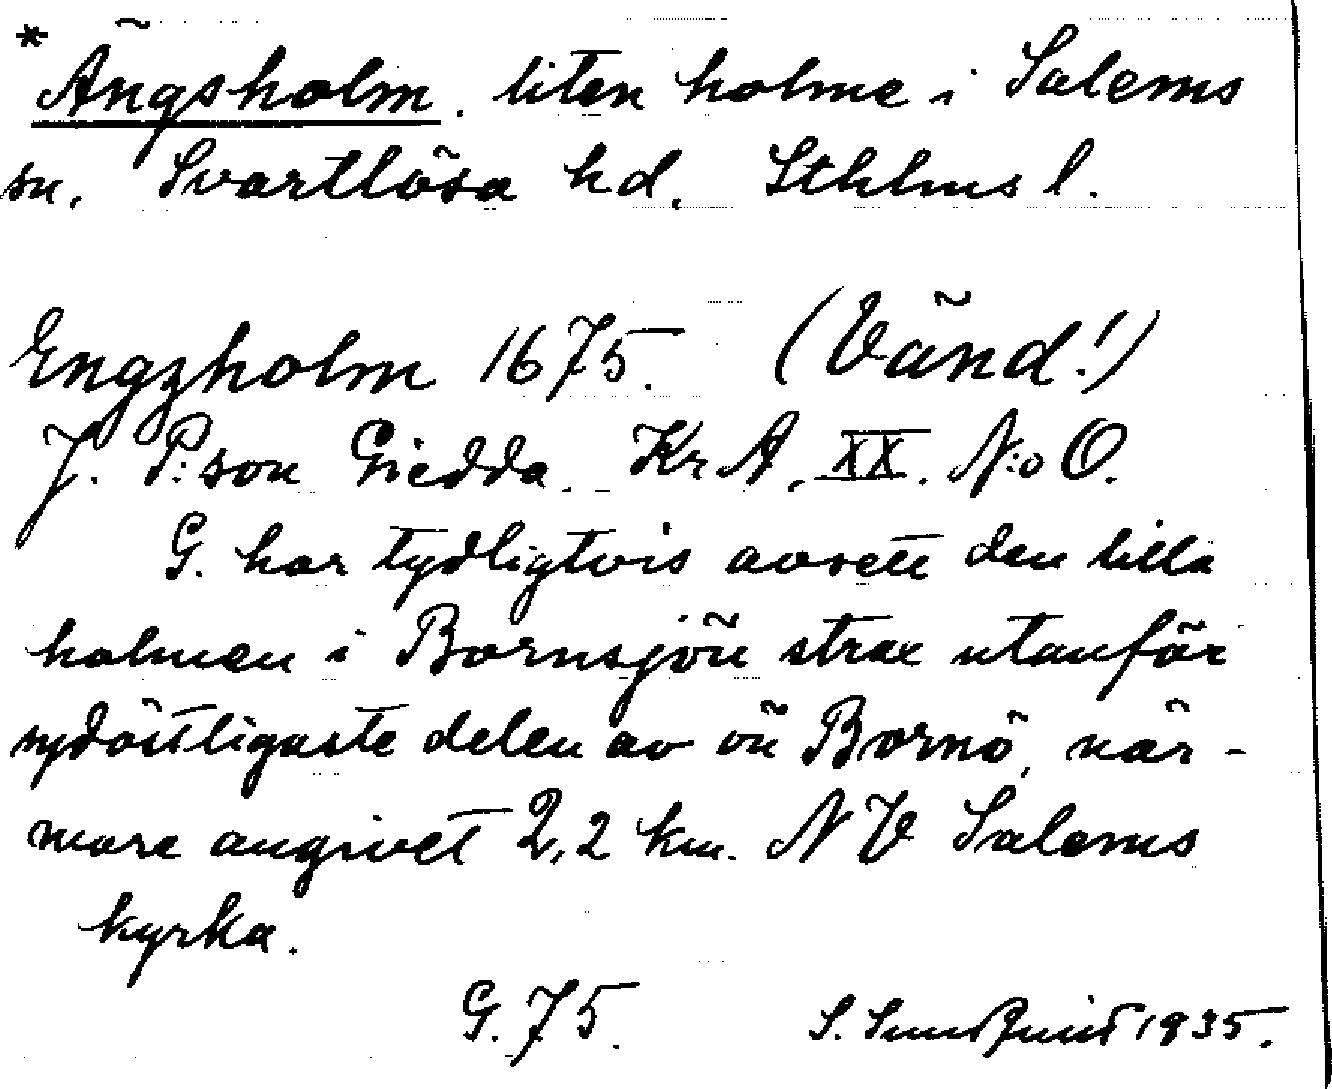 * Ängsholm. liten holme i Salems
sn. Svartlösa hd. Sthlms l.
Engzholm 1675. (Vänd!)
J. P:son Giedda. Kr A. XX. N:o O.
G. har tydligtvis avsett den lilla
holmen i Bornsjön strax utanför
sydöstligaste delen av ön Bornö, när-
mare angivet 2,2 km. NV Salems
kyrka.
G. 75. S. Sundquist 1935.